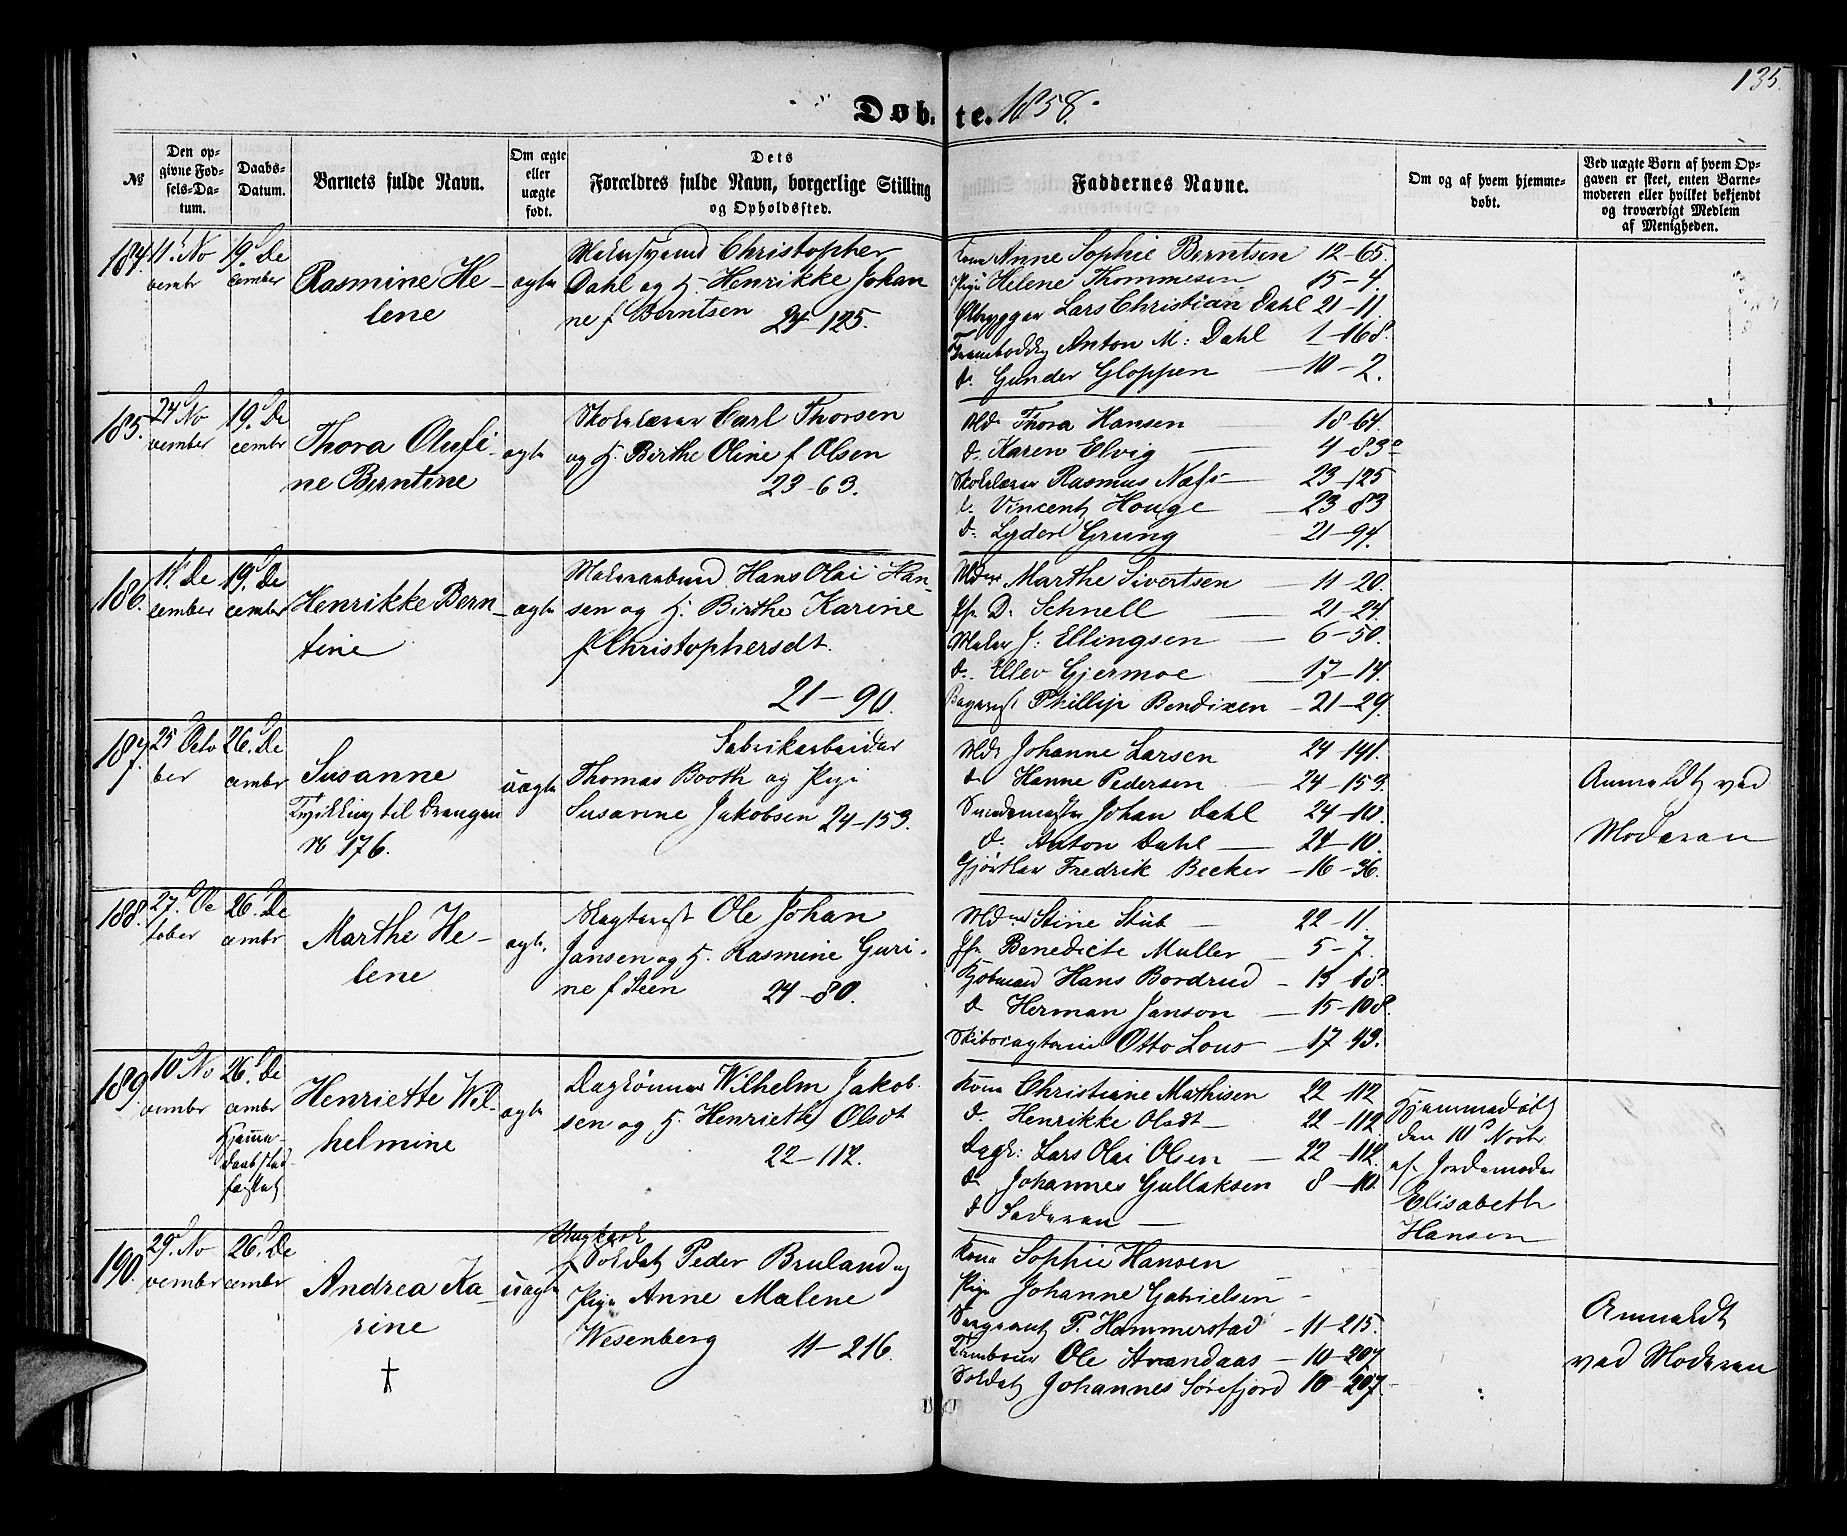 135.
Døbte. 1858.
№
Den opgivne Fødsels-Datum.
Daabs-Datum.
Barnets fulde Navn.
Om ægte eller uægte født.
Dets
Forældres fulde Navn, borgerlige Stilling
og Opholdssted.
Faddernes Navne.
Om og af hvem hjemmedøbt.
Ved uægte Børn af hvem Opgaven er skeet, enten Barnemoderen eller hvilket bekjendt og troværdigt Medlem af Menigheden.
184. 11. November
19. December
Rasmine Helene
ægte
Christopher
Dahl og H. Henrikke Johan
ne f Berntsen 24-125.
Kone Anne Sophie Berntsen 12-65.
Pige Helene Thommesen 15-4.
Ølbrygger Lars Christian Dahl 21-11.
Anton M: Dahl 1-168.
d. Gunder Gloppen 10-2.
185. 24. November
19. December
Thora Olufine Berntine
ægte
Skolelærer Carl Thorsen
og H. Birthe Oline f Olsen
23-63.
Md. Thora Hansen 18-64.
d. Karen Elvig 4-83a
Skolelærer Rasmus Næss 23-125
d. Vincentz Houge 23-83
d. Lyder Grung 21-94.
186. 11. December
19. December
Henrikke Berntine
ægte
Hans Olai Han-
sen og H. Birthe Karine
f Christophersdt.
21-90.
Md. Marthe Sivertsen 11-20.
Jfr. D. Schnell 21-24.
Maler J. Ellingsen 6-50.
d. Ellev Gjermoe 17-14.
Bagersv. Phillip Bendixen 21-29.
187. 25 October
26. December
Susanne
Tvilling til Drengen
№ 176.
uægte
Fabrikarbeider
Thomas Booth og Pige
Susanne Jakobsen 24-153.
Md. Johanne Larsen 24-141.
d. Hanne Pedersen 24-153.
Johan Dahl 24-10.
d. Anton Dahl 24-10.
Gjørtler Fredrik Becker 16-36.
Anmeldt ved
Moderen
188. 27. October
26. December
Marthe Helene
ægte.
Slagtersv. Ole Johan
Jansen og H. Rasmine Guri-
ne f Steen 24-80.
Md. Stine Stub 22-11.
Jfr. Benedicte Muller 5-7.
Kjøbmand Hans Bordrud 13-18.
d Herman Janson 15-108.
Otto Lous 17-43.
189. 10 November
26. December
Hjemmedaab stadfæstet
Henriette Wilhelmine
ægte
Daglønner Wilhelm Jakob-
sen og H. Henriette Olsdt
22-112.
Kone Christiane Mathisen 22-112
d. Henrikke Olsdt 22-112
Dagk: Lars Olai Olsen 22-112.
d. Johannes Gullaksen 8-10.
d Faderen
Hjemmedøbt
den 10 Novbr
af Jordemoder
Elisabeth
Hansen
190. 29. November
26. December
Andrea Karine
†
uægte
Ungkarl
f Soldat Peder Bruland og
Pige Anne Malene
Wesenberg 11-216.
Kone Sophie Hansen
Pige Johanne Gabrielsen
Sergeant P. Hammerstad 11-215.
Tambour Ole Strandaas 10-207
Soldat Johannes Sørefjord 10-207
Anmeldt
ved Moderen